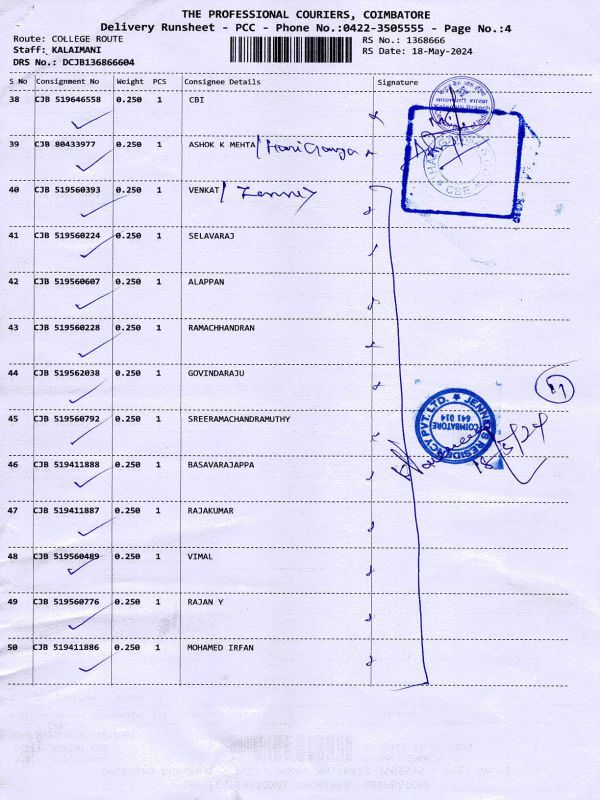 THE PROFESSIONAL COURIERS, COIMBATORE
Delivery Runsheet - PCC - Phone No.:0422-3505555 - Page No.:4
Route: COLLEGE ROUTE RS No.: 1368666
Staff: KALAIMANI RS Date: 18-May-2024
DRS No.: DCJB136866604
S No Consignment No Weight PCS Consignee Details Signature
38 CJB 519646558 0.250 1 CBI
39 CJB 80433977 0.250 1 ASHOK K MEHTA
40 CJB 519560393 0.250 1 VENKAT
41 CJB 519560224 0.250 1 SELAVARAJ
42 CJB 519560607 0.250 1 ALAPPAN
43 CJB 519560228 0.250 1 RAMACHHANDRAN
44 CJB 519562038 0.250 1 GOVINDARAJU
11
JENNEYS RESIDENCY PVT. LTD.
COIMBATORE
641 014
18/5/24
45 CJB 519560792 0.250 1 SREERAMACHANDRAMUTHY
46 CJB 519411888 0.250 1 BASAVARAJAPPA
47 CJB 519411887 0.250 1 RAJAKUMAR
48 CJB 519560489 0.250 1 VIMAL
49 CJB 519560776 0.250 1 RAJAN Y
50 CJB 519411886 0.250 1 MOHAMED IRFAN